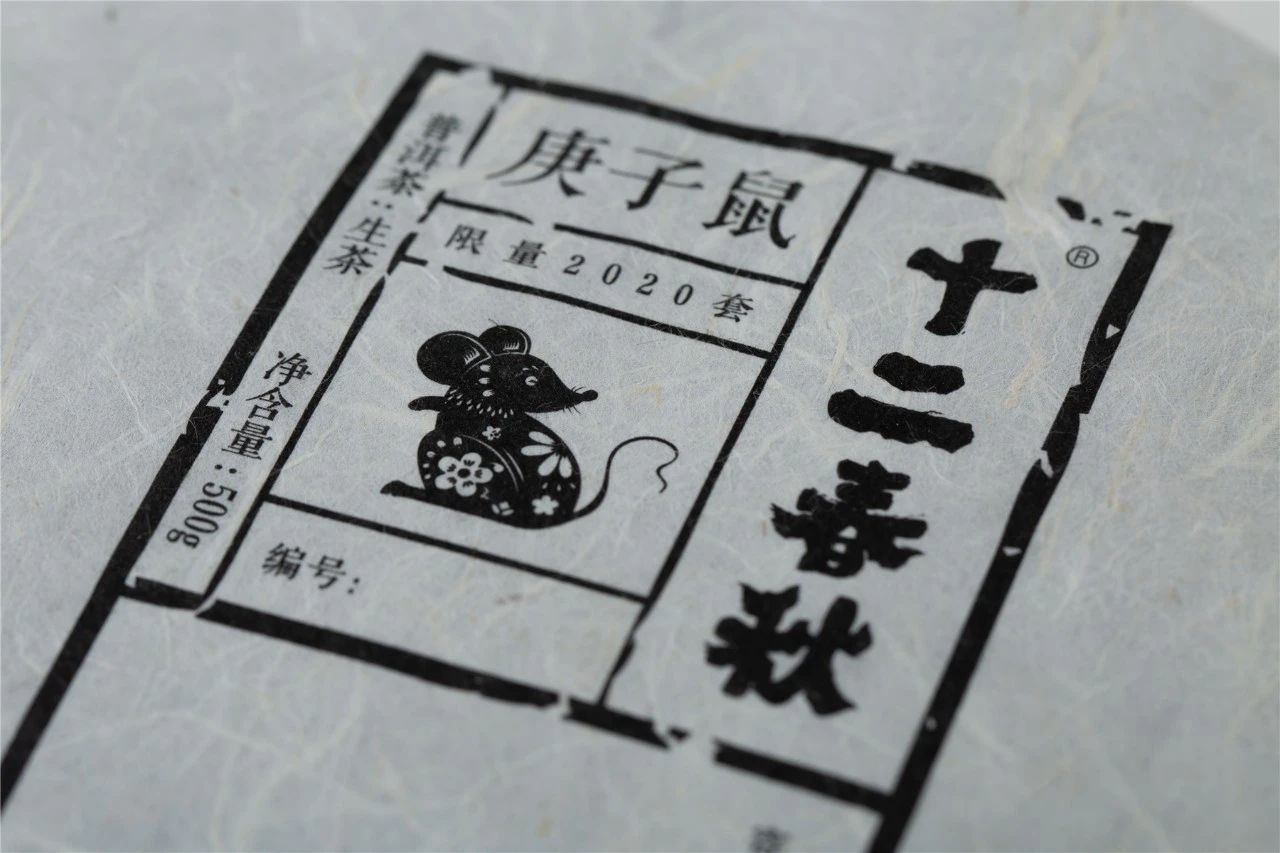 十二春秋®
庚子鼠
限量2020套
普洱茶：生茶
净含量：500g
编号：